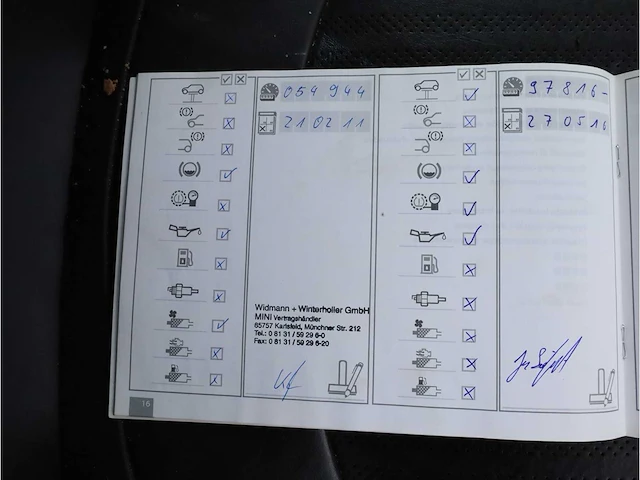 054 944
21 02 11
Widmann + Winterholler GmbH
MINI Vertragshändler
85757 Karlsfeld, Münchner Str. 212
Tel.: 0 81 31 / 59 29 6-0
Fax: 0 81 31 / 59 29 6-20
16
97816-
27 05 16